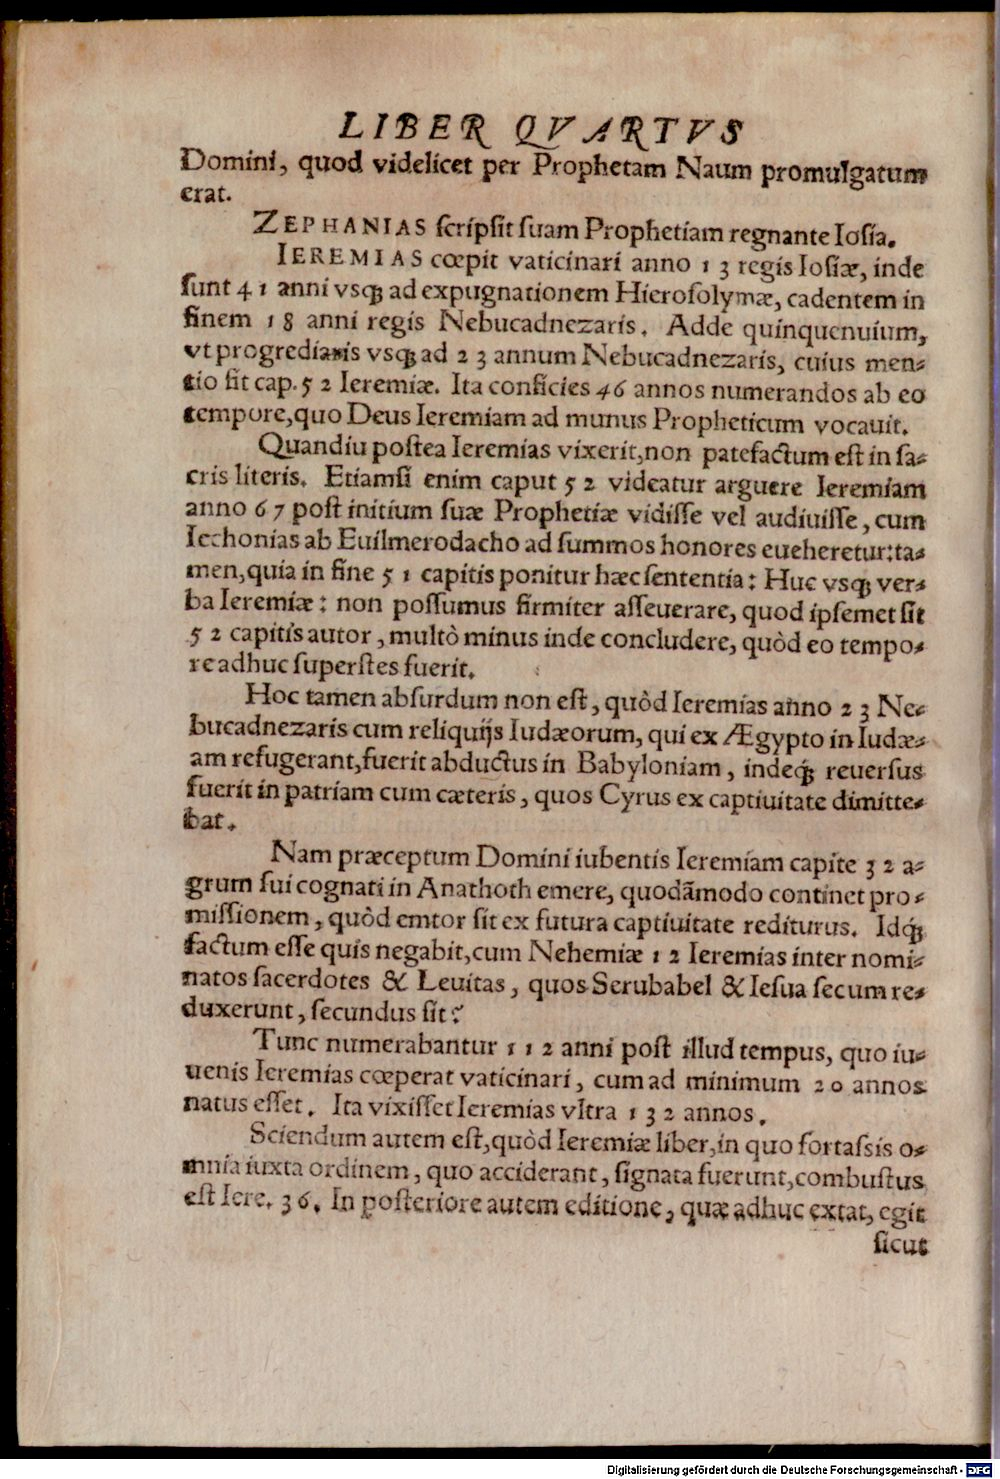 LIBER QVARTVS
Domini, quod videlicet per Prophetam Naum promulgatum
erat.
ZEPHANIAS ſcripſit ſuam Prophetiam regnante Ioſia.
IEREMIAS cœpit vaticinari anno 13 regis Ioſiæ, inde
ſunt 41 anni vsq; ad expugnationem Hieroſolymæ, cadentem in
finem 18 anni regis Nebucadnezaris. Adde quinquenuium,
vt progrediaris vsq; ad 23 annum Nebucadnezaris, cuius men-
tio fit cap. 52 Ieremiæ. Ita conficies 46 annos numerandos ab eo
tempore, quo Deus Ieremiam ad munus Propheticum vocauit.
Quandiu poſtea Ieremias vixerit, non patefactum eſt in ſa-
cris literis. Etiamſi enim caput 52 videatur arguere Ieremiam
anno 67 poſt initium ſuæ Prophetiæ vidiſſe vel audiuiſſe, cum
Iechonias ab Euilmerodacho ad ſummos honores eueheretur: ta-
men, quia in fine 51 capitis ponitur hæc ſententia: Huc vsq; ver-
ba Ieremiæ: non poſſumus firmiter aſſeuerare, quod ipſemet ſit
52 capitis autor, multò minus inde concludere, quòd eo tempo-
re adhuc ſuperſtes fuerit.
Hoc tamen abſurdum non eſt, quòd Ieremias anno 23 Ne-
bucadnezaris cum reliquijs Iudæorum, qui ex Ægypto in Iudæ-
am refugerant, fuerit abductus in Babyloniam, indeq́; reuerſus
fuerit in patriam cum cæteris, quos Cyrus ex captiuitate dimitte-
bat.
Nam præceptum Domini iubentis Ieremiam capite 32 a-
grum ſui cognati in Anathoth emere, quodãmodo continet pro-
miſſionem, quòd emtor ſit ex futura captiuitate rediturus. Idq́;
factum eſſe quis negabit, cum Nehemiæ 12 Ieremias inter nomi-
natos ſacerdotes & Leuitas, quos Serubabel & Ieſua ſecum re-
duxerunt, ſecundus ſit?
Tunc numerabantur 112 anni poſt illud tempus, quo iu-
uenis Ieremias cœperat vaticinari, cum ad minimum 20 annos
natus eſſet. Ita vixiſſet Ieremias vltra 132 annos.
Sciendum autem eſt, quòd Ieremiæ liber, in quo fortaſsis o-
mnia iuxta ordinem, quo acciderant, ſignata fuerunt, combuſtus
eſt Iere. 36. In poſteriore autem editione, quæ adhuc extat, egit
ſicut
Digitalisierung gefördert durch die Deutsche Forschungsgemeinschaft - DFG